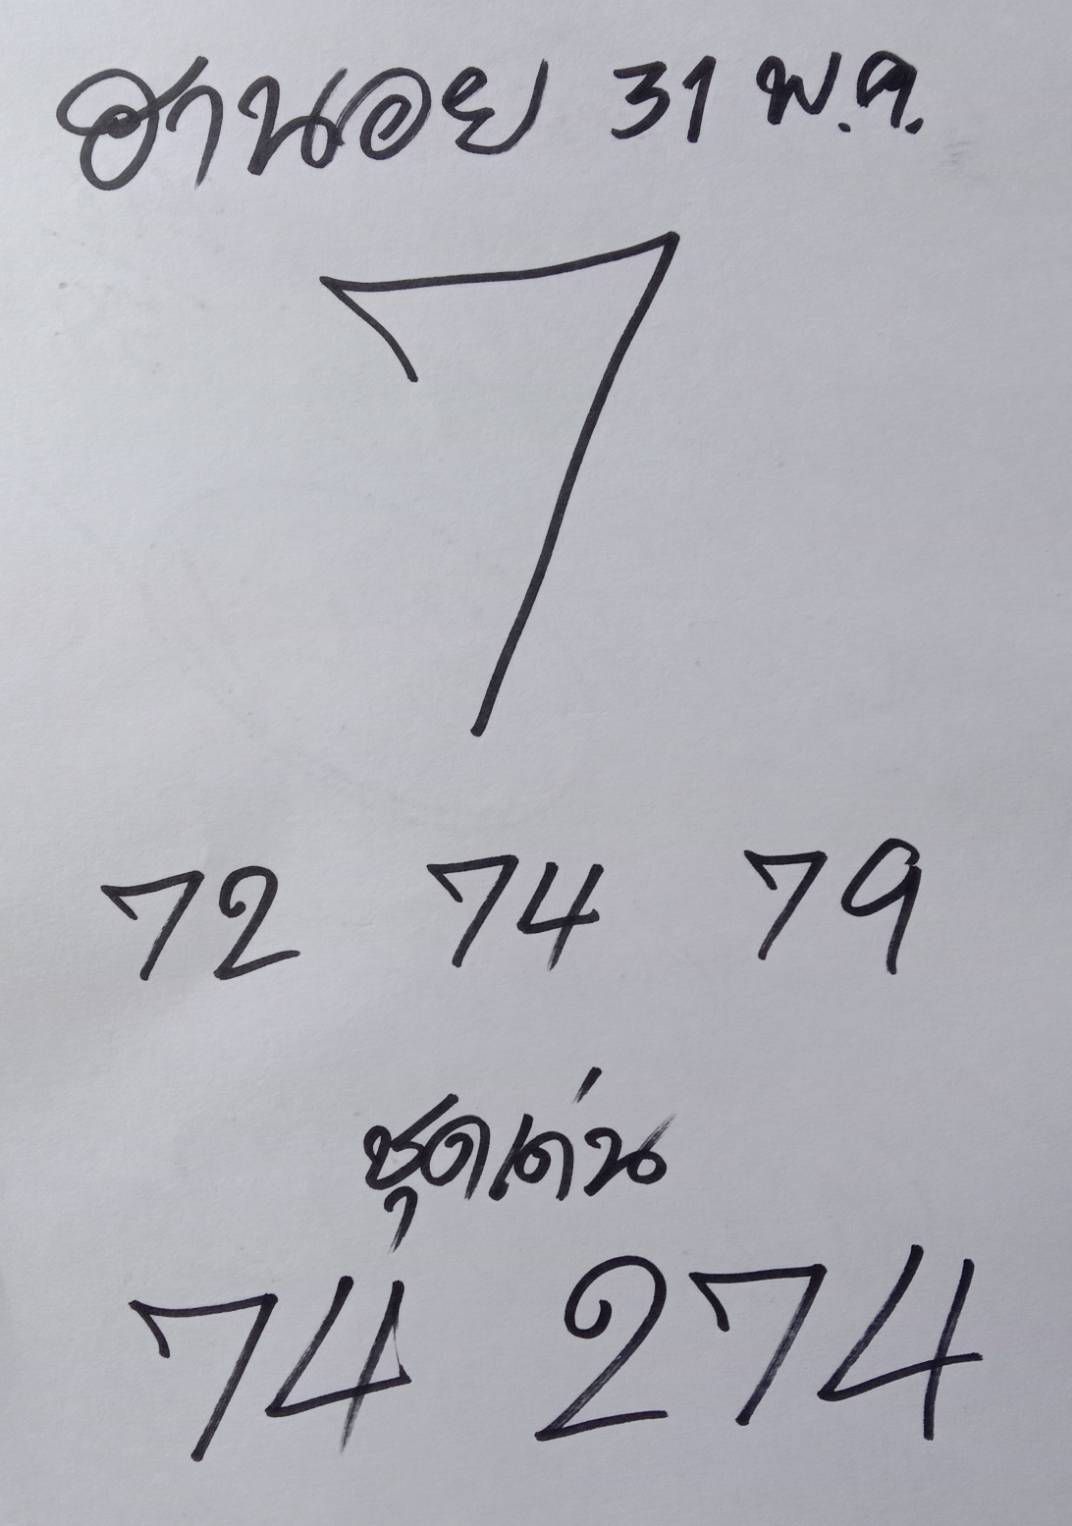 ฮานอย 31 พ.ค.
7
72 74 79
ชุดเด่น
74 274